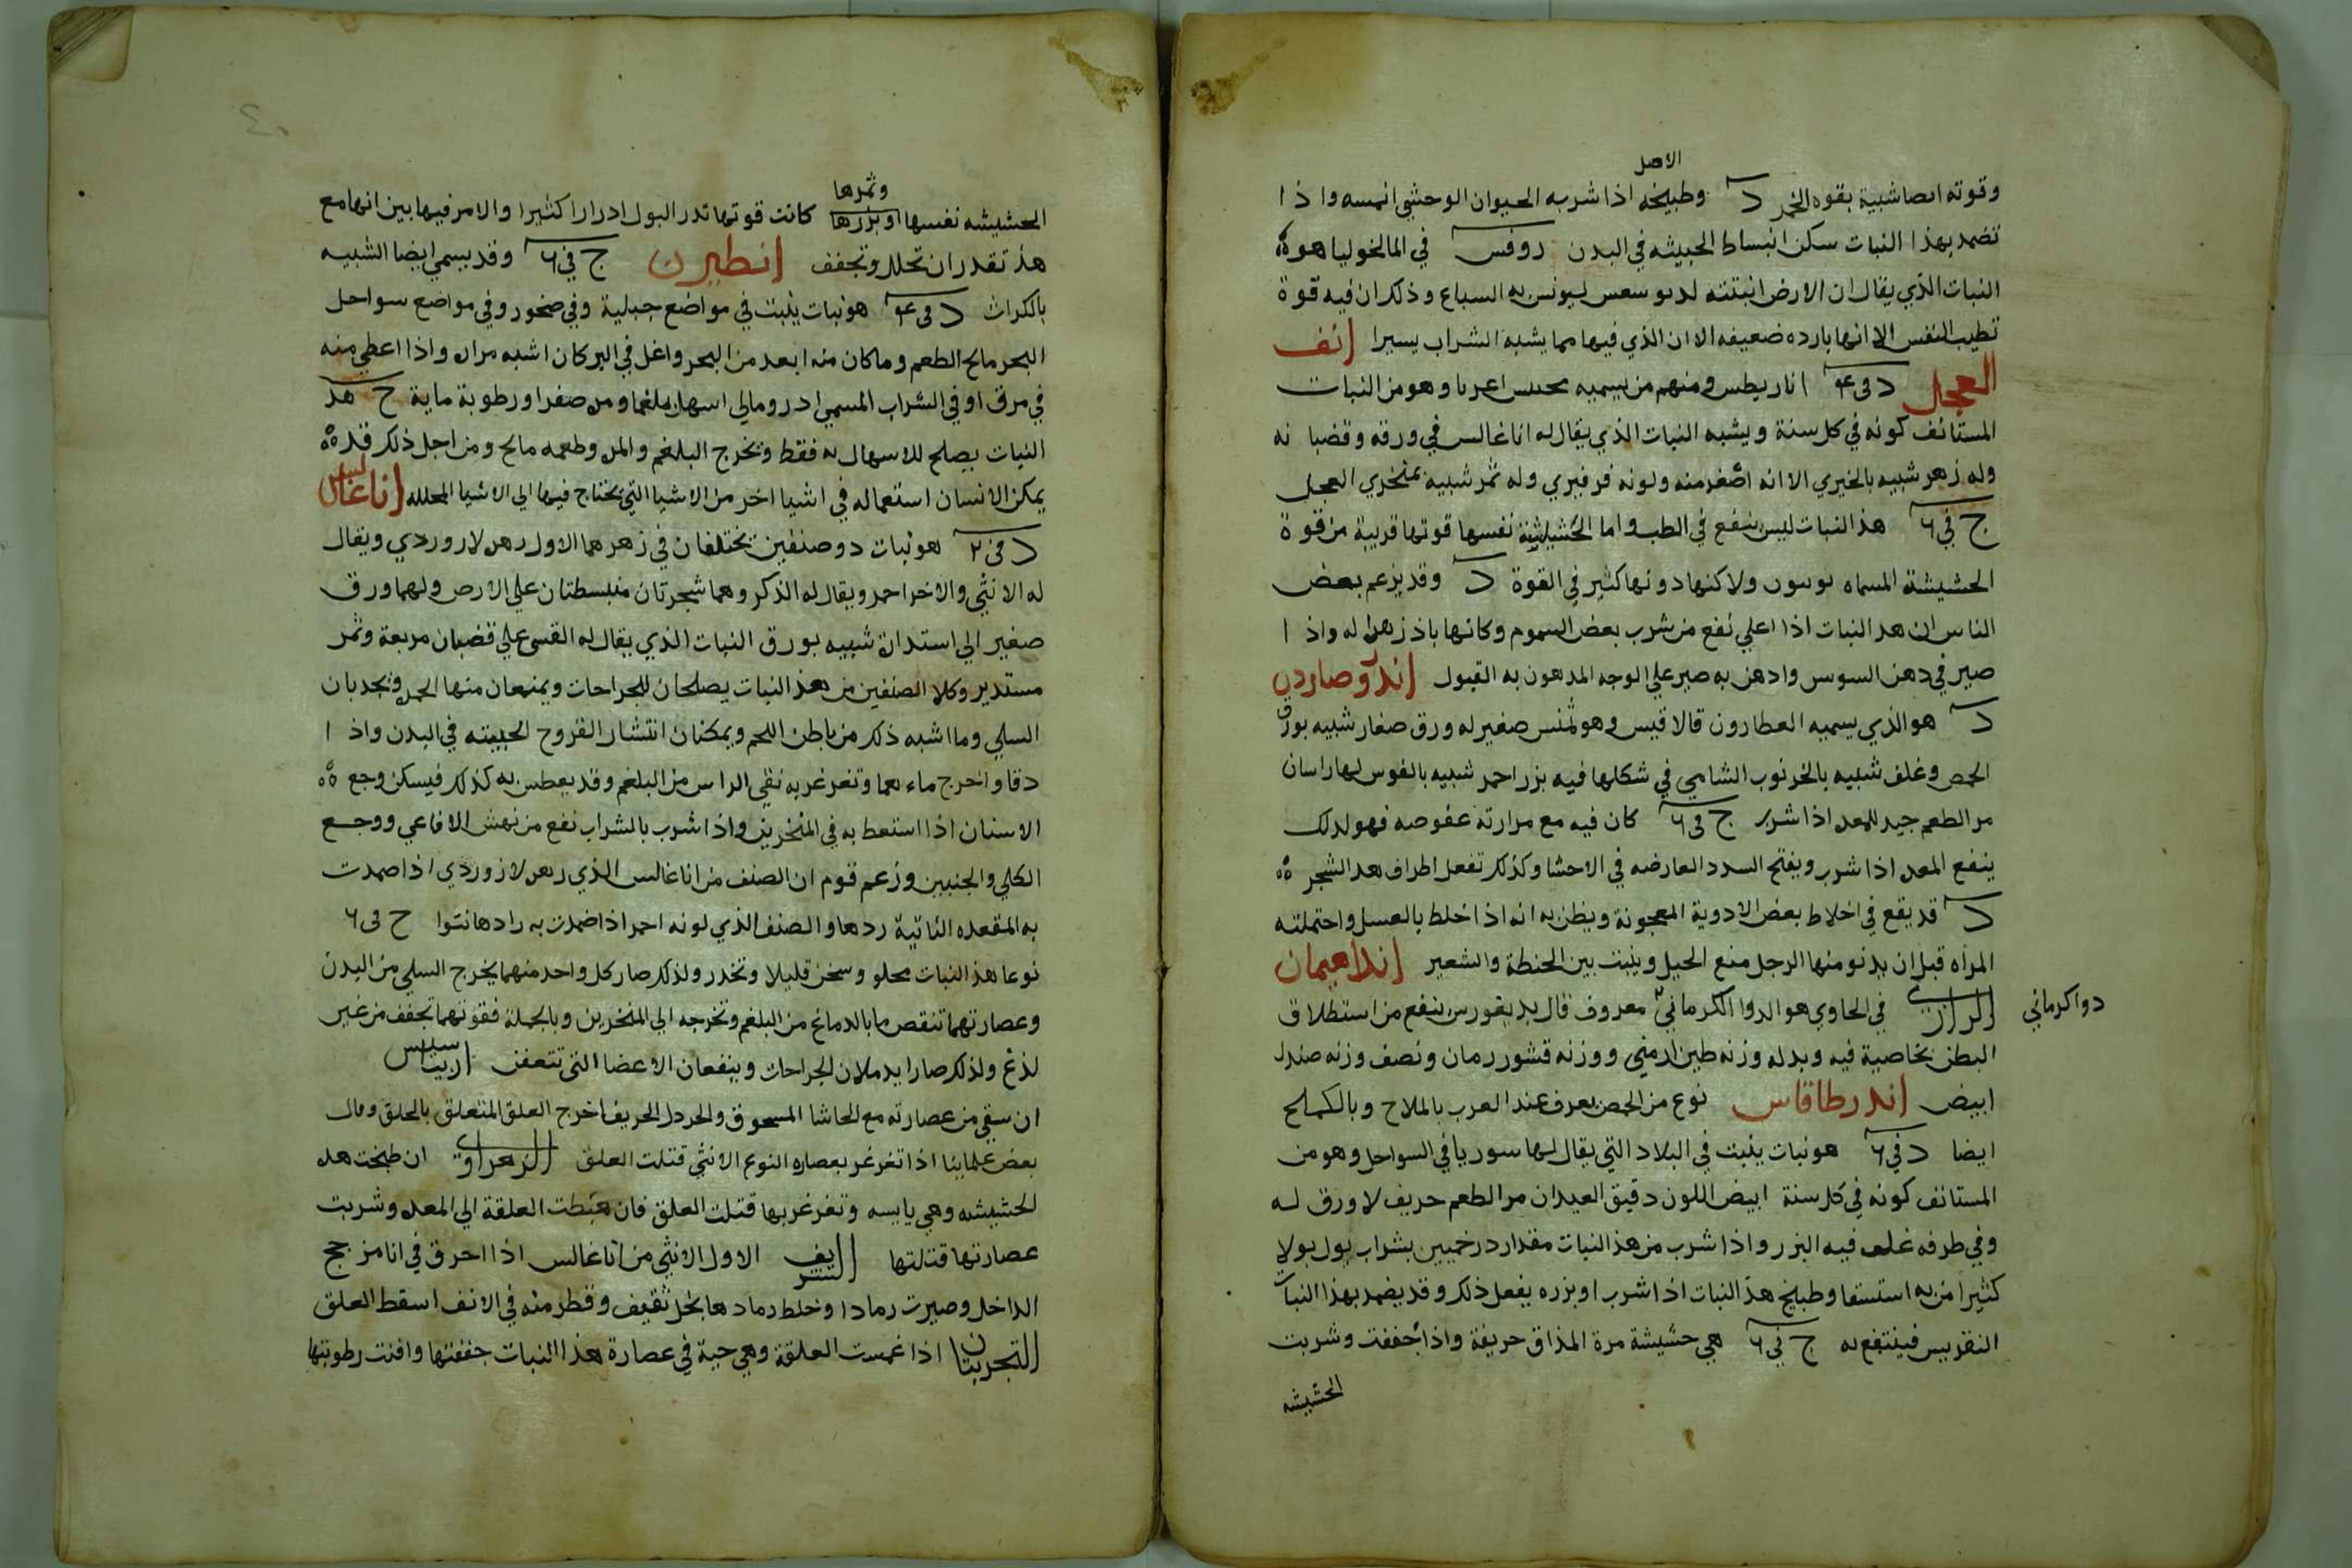 الاصل
وقوته ايضا شبية بقوه الخمر د وطبيخه اذا شربه الحيوان الوحشي انسه واذا
تضمد بهذا النبات سكن انبساط الخبيثه في البدن روفس في المالخوليا هو
النبات الذي يقال ان الارض انبتته ليونس به السباع وذكر ان فيه قوة
تطيب النفس الا انها بارده ضعيفه الا ان الذي فيها مما يشبه الشراب يسيرا انف
العجل د في ٤ اناريطس ومنهم من يسميه وهو من النبات
المستانف كونه في كل سنة ويشبه النبات الذي يقال له اناغالس في ورقه وقضبا نه
وله زهر شبيه بالخيري الا انه اصغر منه ولونه فرفيري وله ثمر شبيه بمنخري العجل
ج في ٦ هذ النبات ليس ينفع في الطب واما الحشيشة نفسها قوتها قريبة من قوة
الحشيشة المسماه ولاكنها دونها كثير في القوة د وقد يزعم بعض
الناس ان هد النبات اذا اعلي نفع من شرب بعض السموم وكانها باذزهرا له واذ ا
صير في دهن السوس وادهن به صير علي الوجه المدهون به القبول اندروصارون
د هو الذي يسميه العطارون قالاقيس وهو ثمنس صغير له ورق صغار شبيه بورق
الحمص وغلف شبيه بالخرنوب الشامي في شكلها فيه بزر احمر شبيه بالفوس لها راسان
مر الطعم جيد للمعده اذا شرب ج في ٦ كان فيه مع مرارته عفوصه فهو لدلك
ينفع المعده اذا شرب ويفتح السدد العارضه في الاحشا وكذلك تفعل اطراف هد الشجر
د قد يقع في اخلاط بعض الادوية المعجونة ويظن به انه اذا خلط بالعسل واحتملته
المراه قبل ان يدنو منها الرجل منع الحبل وينبت بين الحنطة والشعير انداهيمان
دوا كرماني
الرازي في الحاوي هو الدوا الكرماني معروف قال بديغورس ينفع من استطلاق
البطن بخاصية فيه وبدله وزنه طين ارمني ووزنه قشور رمان ونصف وزنه صندل
ابيض اندرطاقاس نوع من الحمض يعرف عند العرب بالملاح وبالكملح
ايضا د في ٦ هو نبات ينبت في البلاد التي يقال لها سوريا في السواحل وهو من
المستانف كونه في كل سنة ابيض اللون دقيق العيدان مر الطعم حريف لا ورق له
وفي طرفه غلف فيه البزر واذا شرب من هذ النبات مقدار درخميين بشراب بول بولا
كثيرا من به استسقا وطبيخ هذ النبات اذا شرب او بزره يفعل ذلك وقد يضمد بهذا النبات
النقريس فينتفع به ج في ٦ هي حشيشة مرة المذاق حريفة واذا جففت وشربت
الحشيشه
وثمرها
الحشيشه نفسها او بزرها كانت قوتها تدر البول ادرارا كثيرا والامر فيها بين انها مع
هذ تقدر ان تحلل وتجفف انطيرن ج في ٦ وقد يسمي ايضا الشبيه
بالكراث د في ٤ هو نبات ينبت في مواضع جبلية وفي صخور وفي مواضع سواحل
البحر مالح الطعم وما كان منه ابعد من البحر واغل في البر كان اشبه مراره واذا اعطي منه
في مرق او في الشراب المسمي ادرومالي اسهل بلغما ومره صفرا ورطوبة ماية ج هذ
النبات يصلح للاسهال به فقط وتخرج البلغم والمره وطعمه مالح ومن اجل ذلك قد
يمكن الانسان استعماله في اشيا اخر من الاشيا التي يحتاج فيها الي الاشيا المحلله اناغالس
د في ٢ هو نبات دو صنفين يختلفان في زهرهما الاول زهره لازوردي ويقال
له الانثي والاخر احمر ويقال له الذكر وهما شجرتان منبسطتان علي الارض ولهما ورق
صغير الي استداره شبيه بورق النبات الذي يقال له القسى علي قضبان مربعة وثمر
مستدير وكلا الصنفين من هذ النبات يصلحان للجراحات ويمنعان منها الحمره ويجدبان
السلي وما اشبه ذلك من باطن اللحم ويمكنان انتشار القروح الخبيثه في البدن واذ ا
دقا واخرج ماءهما وتغرغر به نقي الراس من البلغم وقد يعطس به كذلك فيسكن وجع
الاسنان اذا استعط به في المنخرين واذا شرب بالشراب نفع من نهش الافاعي ووجع
الكلي والجنبين وزعم قوم ان الصنف من اناغالس الذي زهره لازوردي اذا ضمدت
به المقعده الناتية ردها والصنف الذي لونه احمر اذا ضمدت به زادها نتوا ج في ٦
نوعا هذ النبات يجلو وسخن قليلا وتخدر ولذلك صار كل واحد منهما يخرج السلي من البدن
وعصارتهما تنقص ما بالدماغ من البلغم وتخرجه الي المنخرين وبالجملة فقوتهما تجفف من غير
لذع ولذلك صارا يدملان الجراحات وينفعان الاعضا التي تتعفن
ان سقي من عصارته مع الحاشا المسحوق والخردل الحريف اخرج العلق المتعلق بالحلق وقال
بعض علماينا اذا تغرغر بعصاره النوع الانثي قتلت العلق الزهراوي ان طبخت هذه
الحشيشه وهي يابسه وتغرغر بها قتلت العلق فان هبطت العلقة الي المعده وشربت
عصارتها قتلتها الشريف الاول الانثي من اناغالس اذا احرق في انا مزجج
الداخل وصيرت رمادا وخلط رمادها بخل ثقيف وقطر منه في الانف اسقط العلق
التجربتان اذا غمست العلقة وهي حية في عصارة هذا النبات جففتها وافنت رطوبتها